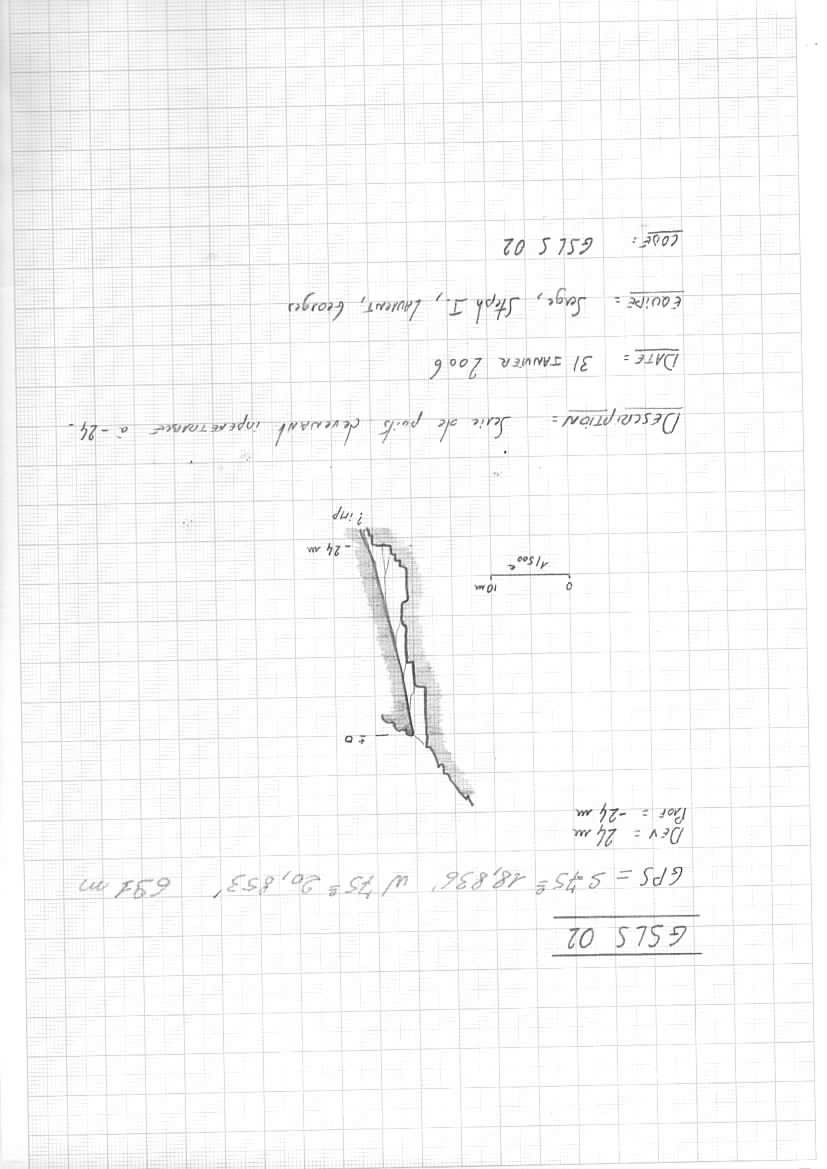 GSLS 02
GPS = S 75º 18,836' W 75º 20,853' 691 m
DEV = 24 m
PROF = -24 m
± 0
0 10m
1/500e
- 24 m
? imp
DESCRIPTION = Serie de puits devenant inpenetrable à -24-
DATE = 31 JANVIER 2006
EQUIPE = Serge, Steph I., LAURENT, Georges
CODE = GSLS 02